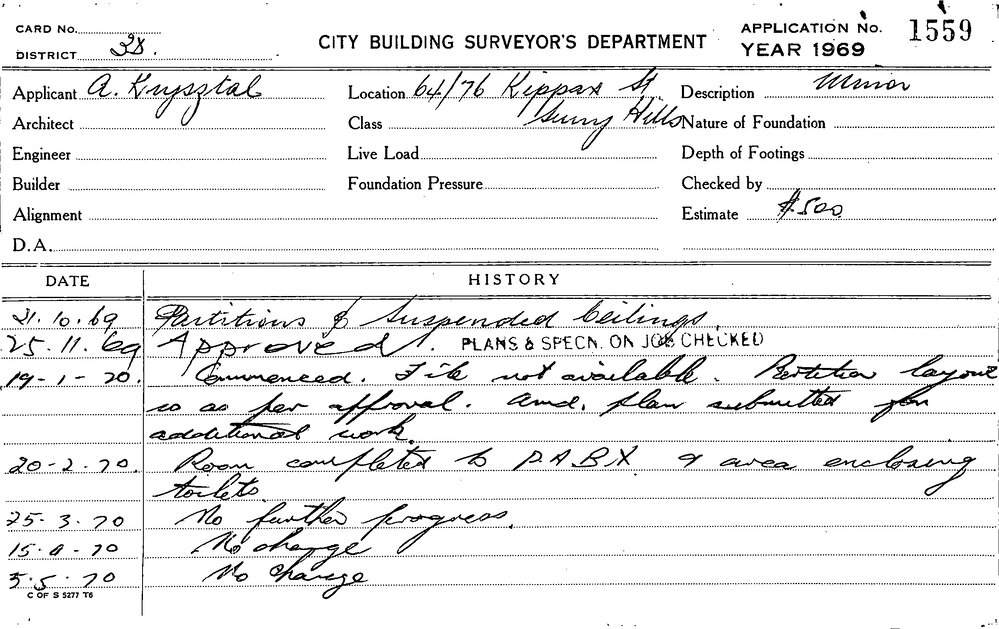 CARD No.
DISTRICT 38.
CITY BUILDING SURVEYOR'S DEPARTMENT
APPLICATION No. 1559
YEAR 1969
Applicant A. Krysztal
Location 64/76 Kippax St
Surry Hills
Description Minor
Architect
Class
Nature of Foundation
Engineer
Live Load
Depth of Footings
Builder
Foundation Pressure
Checked by
Alignment
Estimate $500
D.A.
DATE HISTORY
21.10.69 Partitions & Suspended Ceilings.
25.11.69 Approved. PLANS & SPECN. ON JOB CHECKED
19-1-70. Commenced. File not available. Partition layout
is as per approval. Amd. plan submitted for
additional work.
20-2-70. Room completed to P.A.B.X. & area enclosing
toilets
25-3-70 No further progress.
15-4-70 No change
5.5.70 No change
C OF S 5277 T6